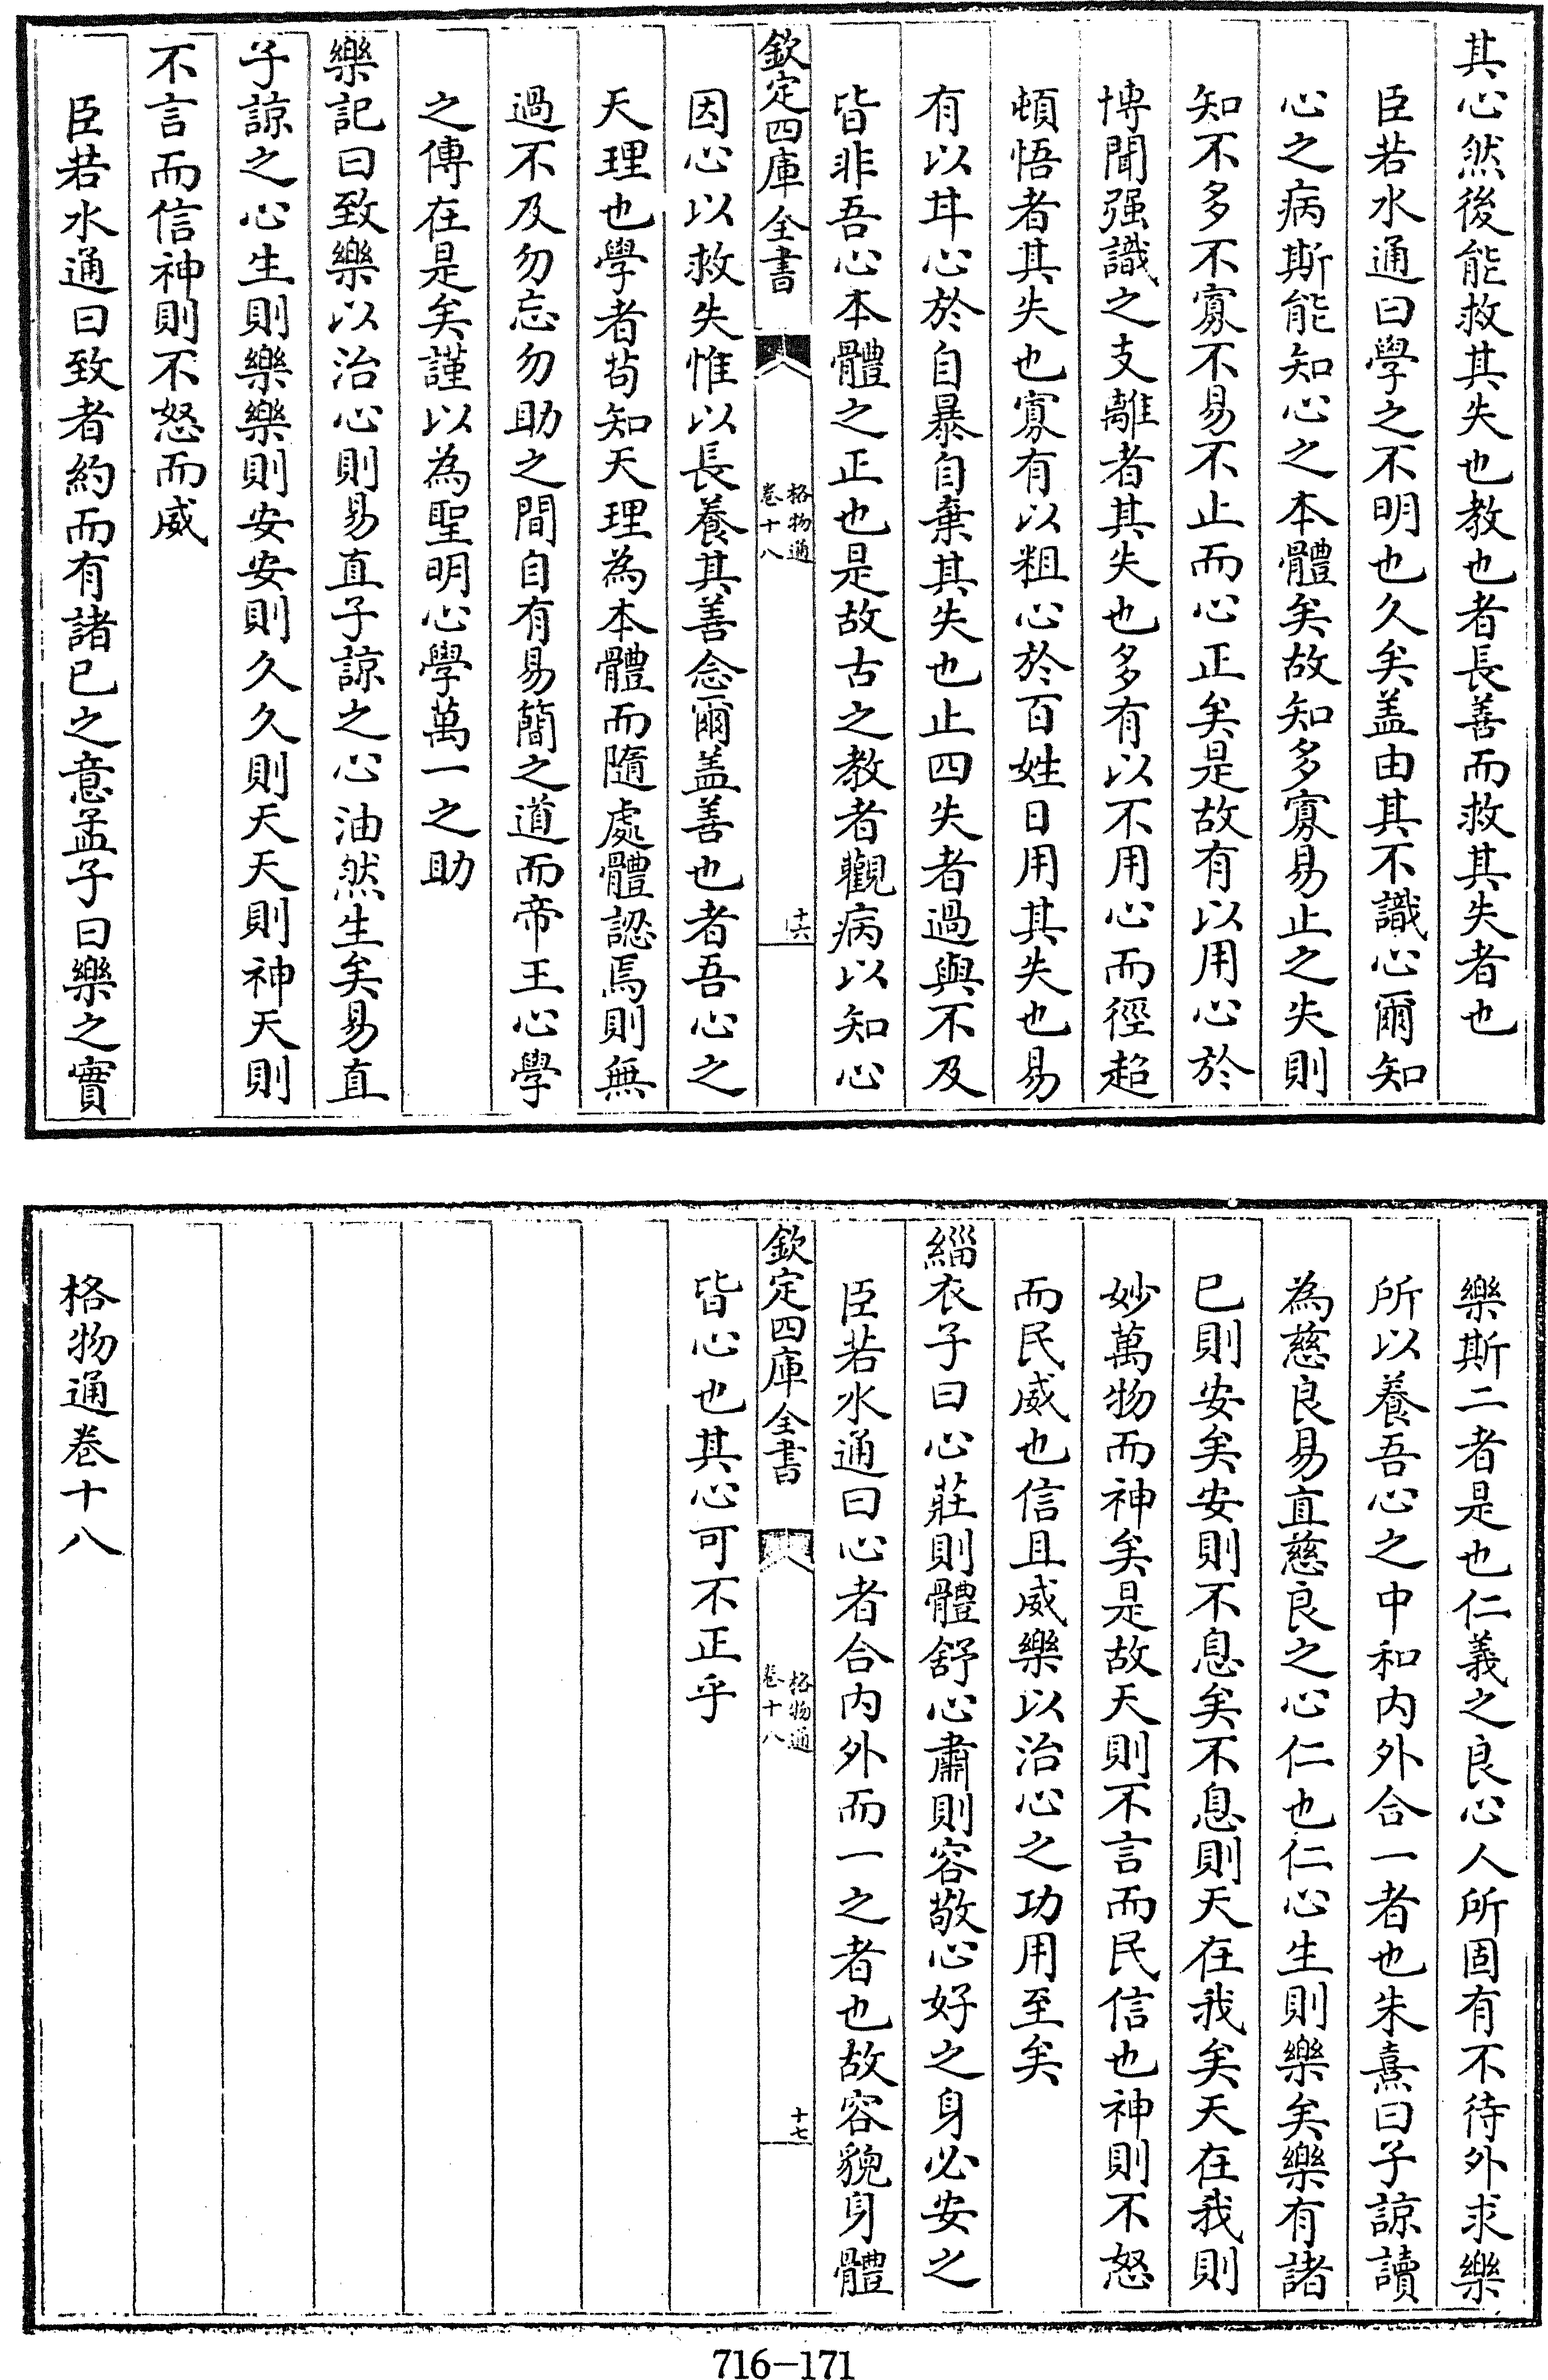 其心然後能救其失也教也者長善而救其失者也
臣若水通曰學之不明也久矣盖由其不識心爾知
心之病斯能知心之本體矣故知多寡易止之失則
知不多不寡不易不止而心正矣是故有以用心於
博聞强識之支離者其失也多有以不用心而徑超
頓悟者其失也寡有以粗心於百姓日用其失也易
有以廾心於自暴自棄其失也止四失者過與不及
皆非吾心本體之正也是故古之教者觀病以知心
欽定四庫全書
格物通
卷十八
十六
因心以救失惟以長養其善念爾盖善也者吾心之
天理也學者茍知天理為本體而隨處體認焉則無
過不及勿忘勿助之間自有易簡之道而帝王心學
之傳在是矣謹以為聖明心學萬一之助
樂記曰致樂以治心則易直子諒之心油然生矣易直
子諒之心生則樂樂則安安則久久則天天則神天則
不言而信神則不怒而威
臣若水通曰致者約而有諸已之意孟子曰樂之實
樂斯二者是也仁義之良心人所固有不待外求樂
所以養吾心之中和内外合一者也朱熹曰子諒讀
為慈良易直慈良之心仁也仁心生則樂矣樂有諸
已則安矣安則不息矣不息則天在我矣天在我則
妙萬物而神矣是故天則不言而民信也神則不怒
而民威也信且威樂以治心之功用至矣
緇衣子曰心莊則體舒心肅則容敬心好之身必安之
臣若水通曰心者合内外而一之者也故容貌身體
欽定四庫全書
格物通
卷十八
十七
皆心也其心可不正乎
格物通卷十八
716-171